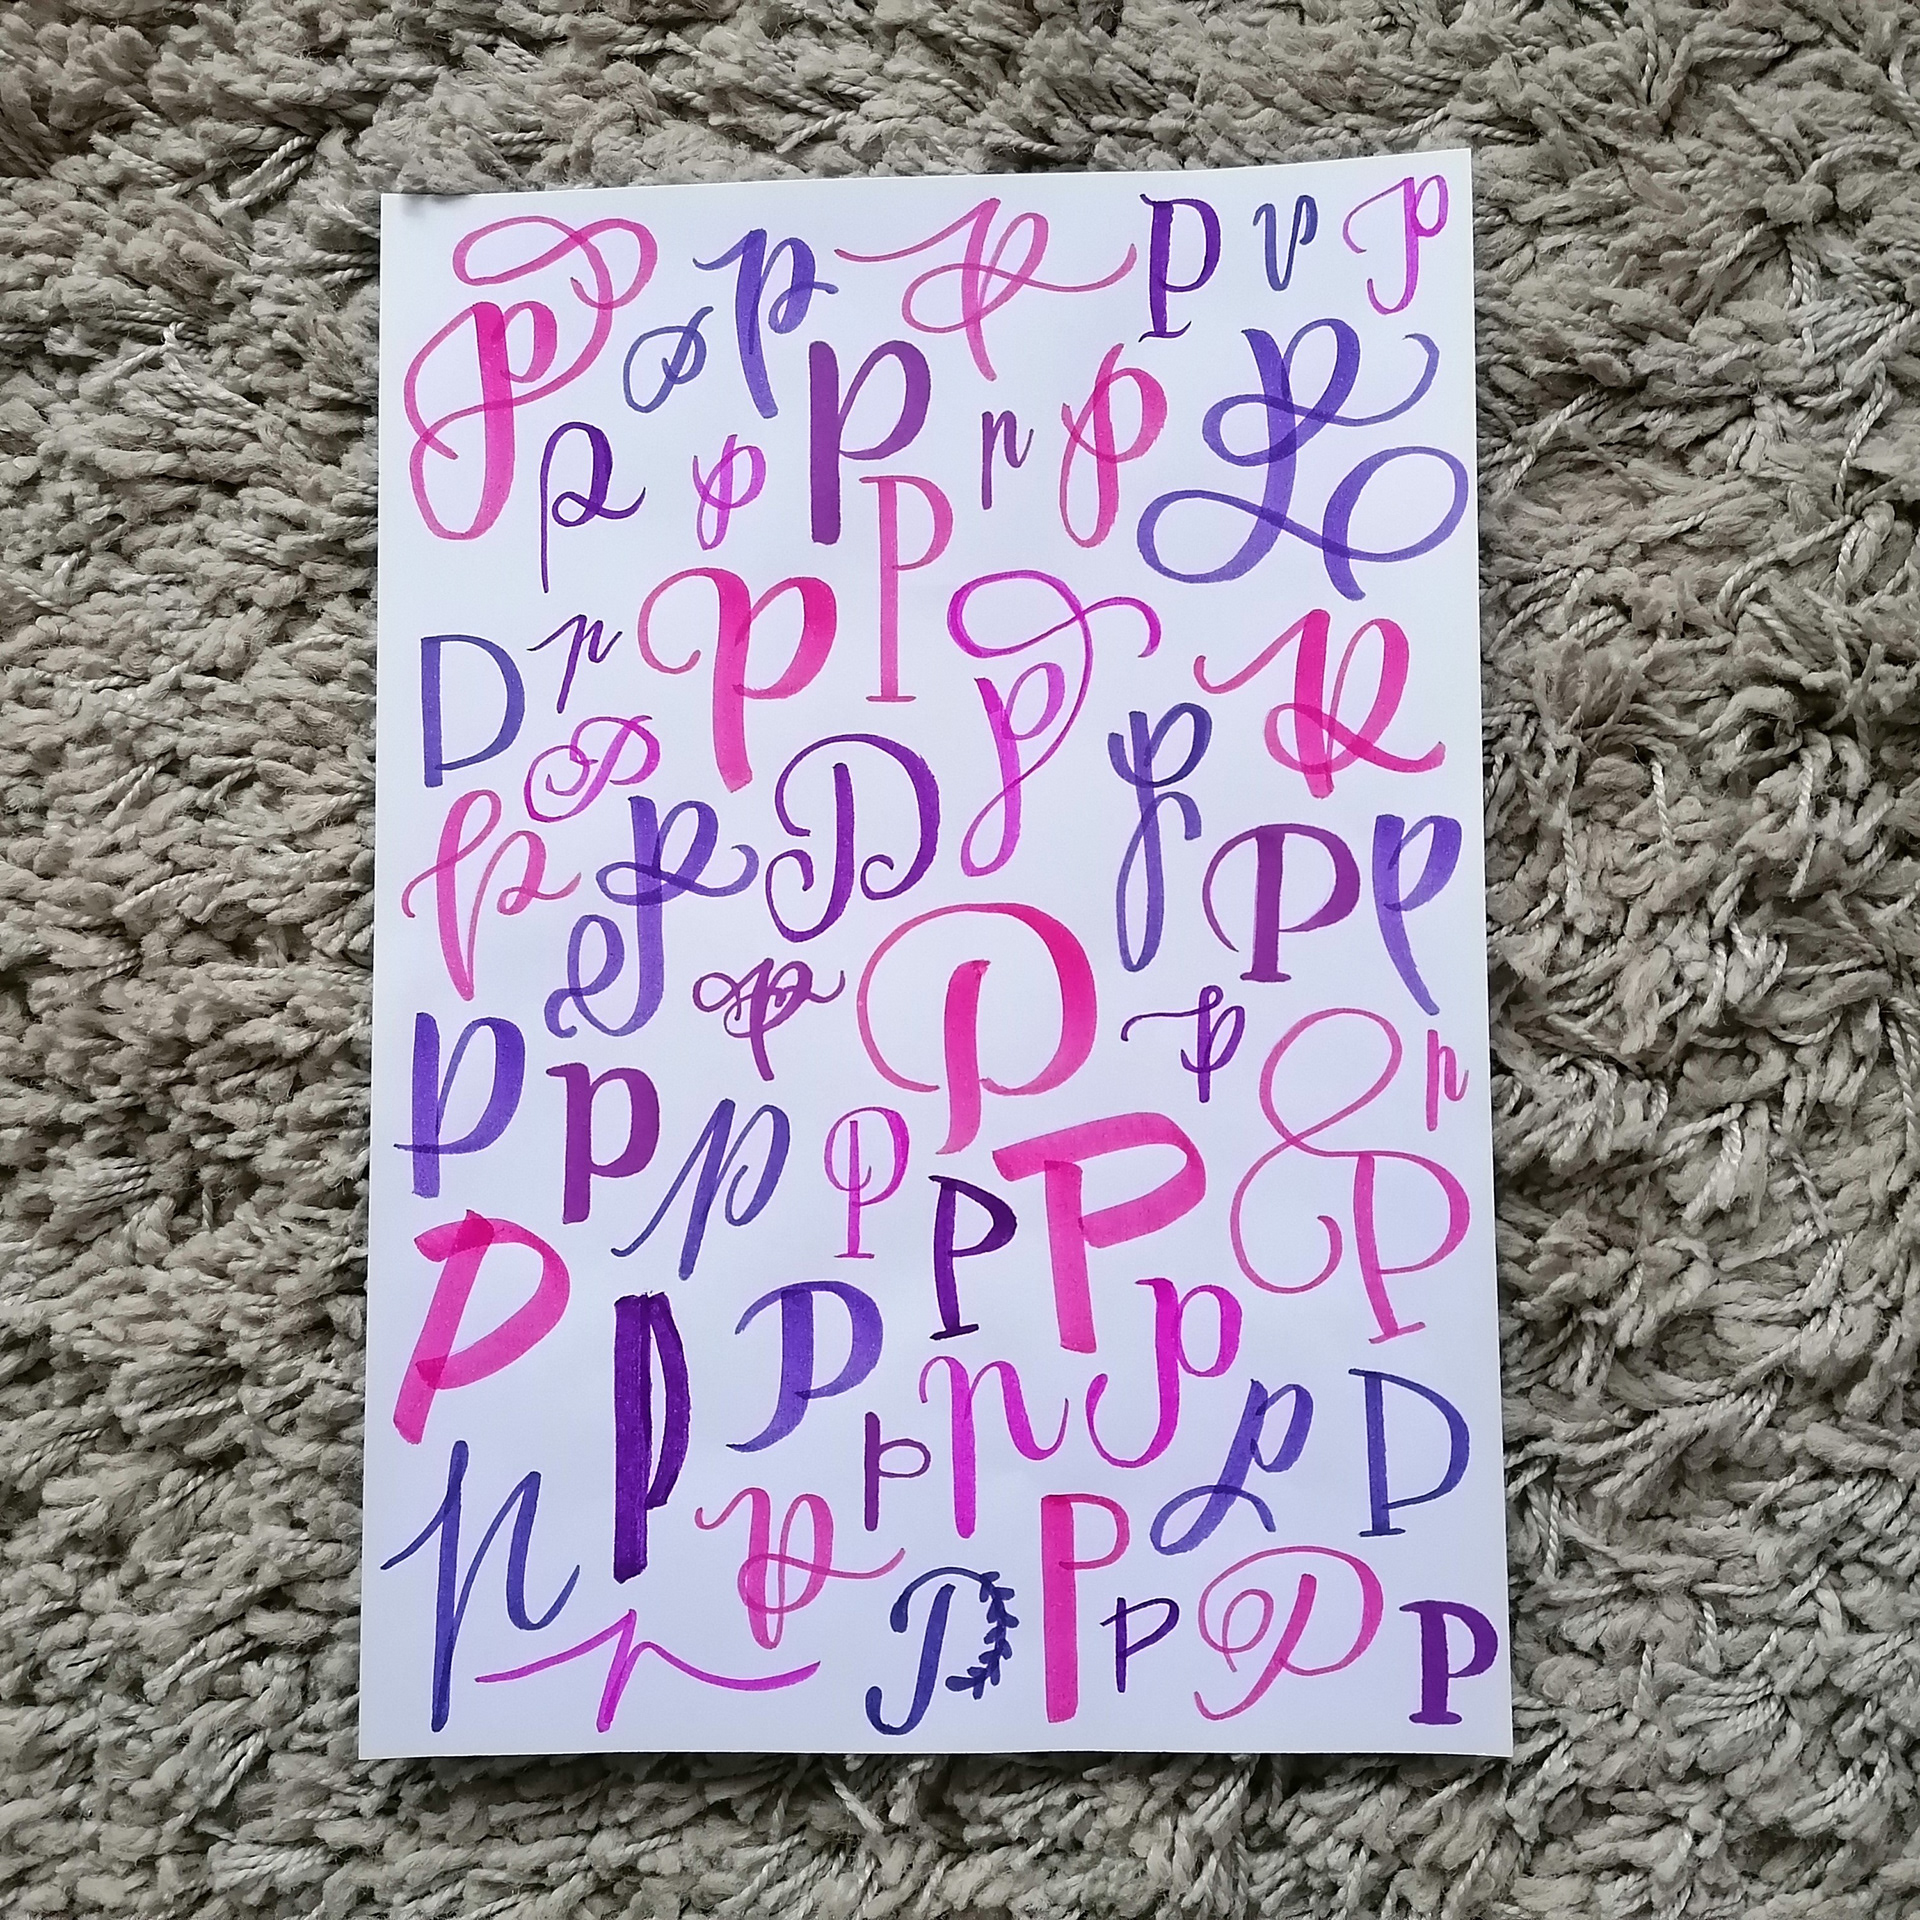 P p P P p P
P p P p P P
p p P
D p P P P P
P P P P P P p
P P P P P p
p p p P P P P
P P P P p P P
p P p P P
p P P P P P